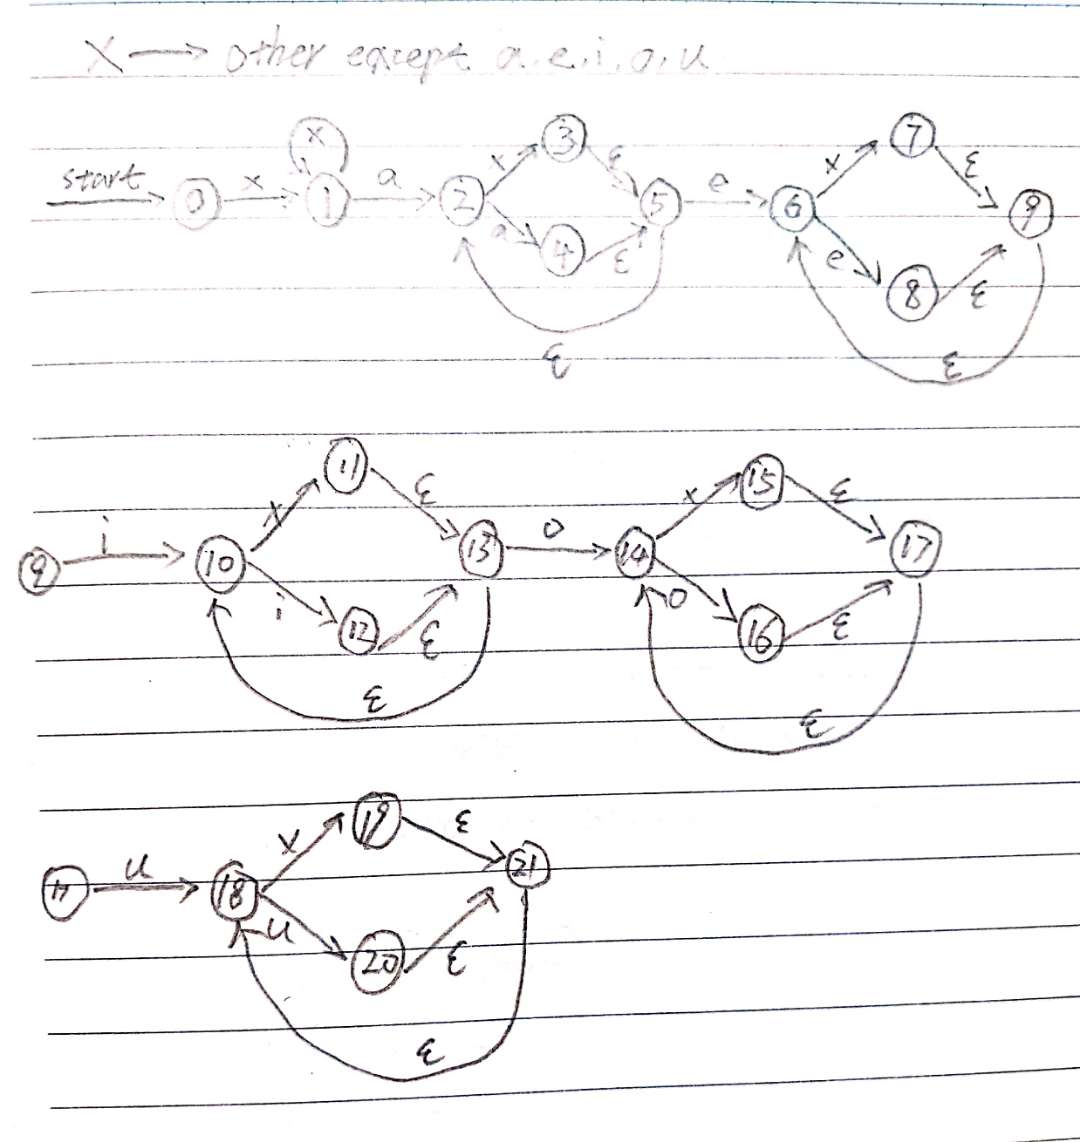 X → other except a.e.i.o.u
start 0 x 1 x a 2 x 3 ε a 4 ε 5 ε e 6 x 7 ε e 8 ε 9 ε
9 i 10 x 11 ε i 12 ε 13 ε o 14 x 15 ε o 16 ε 17 ε
17 u 18 x 19 ε u 20 ε 21 ε